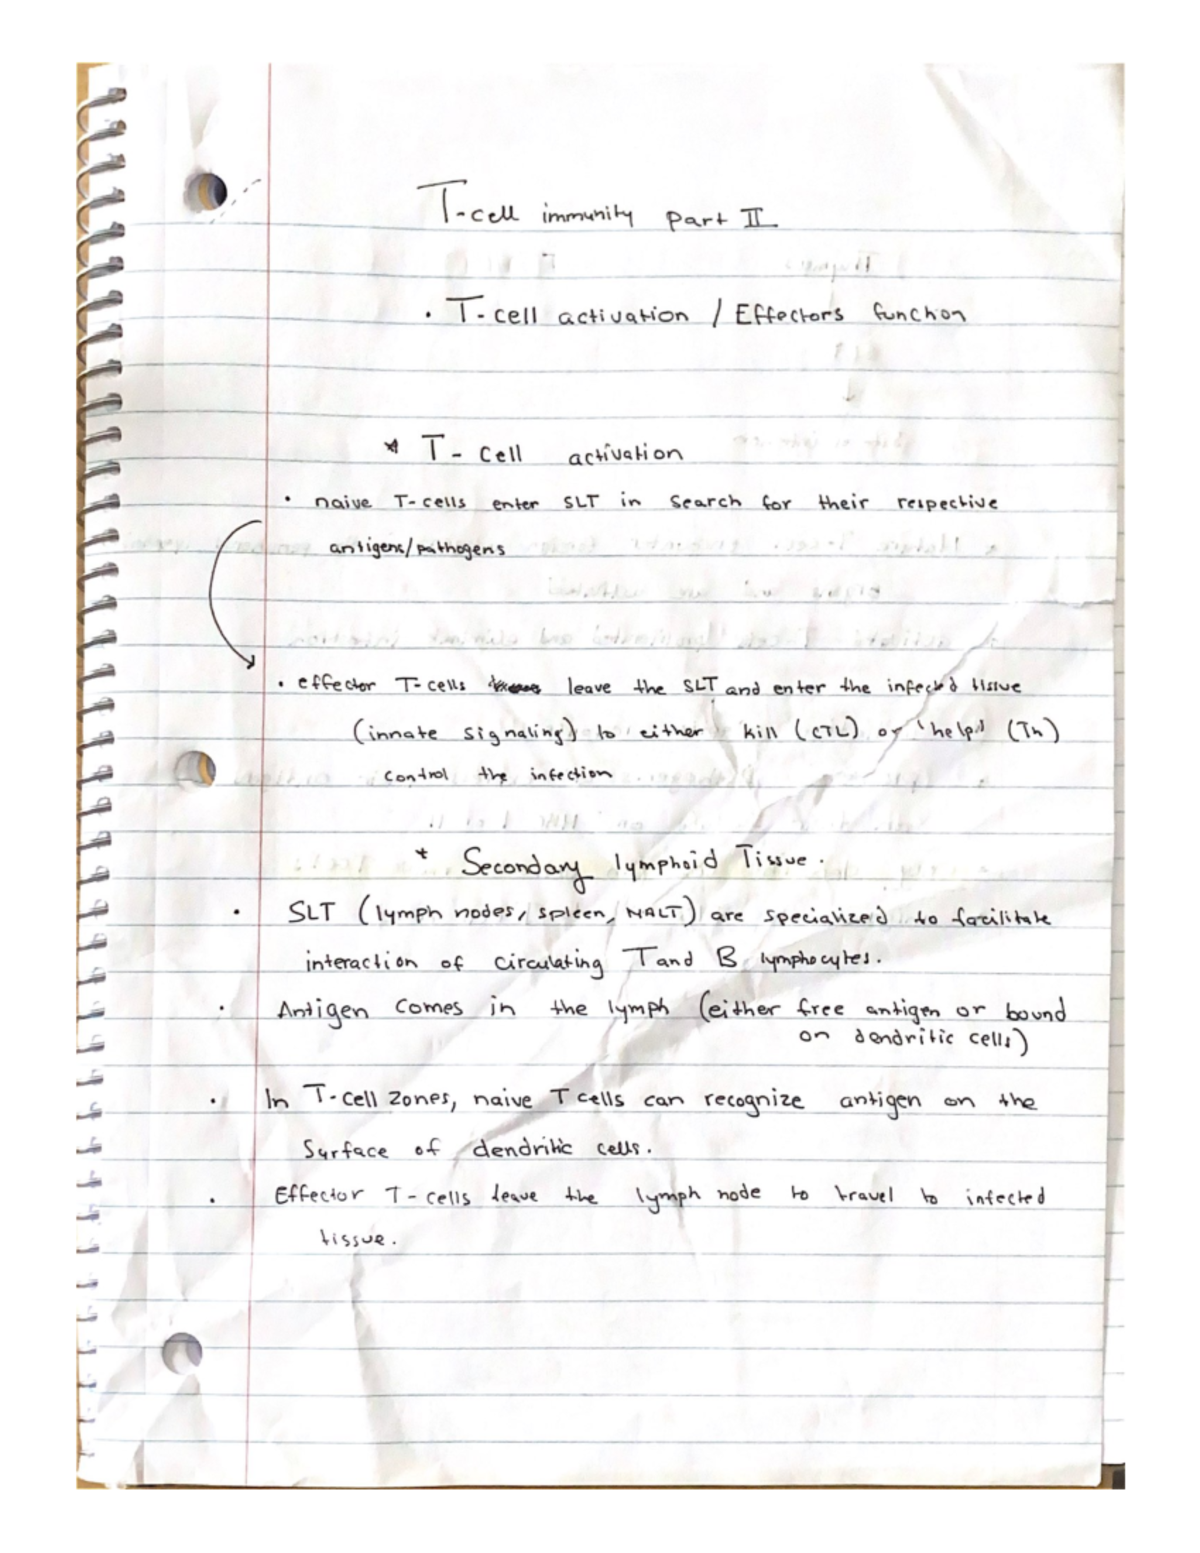 T-cell immunity part II
• T-cell activation / Effectors function
* T-cell activation
• naive T-cells enter SLT in search for their respective
antigens/pathogens
• effector T-cells leave the SLT and enter the infected tissue
(innate signaling) to either kill (CTL) or 'help' (Th)
control the infection
* Secondary lymphoid Tissue.
• SLT (lymph nodes, spleen, MALT) are specialized to facilitate
interaction of circulating T and B lymphocytes.
• Antigen comes in the lymph (either free antigen or bound
on dendritic cells)
• In T-cell zones, naive T cells can recognize antigen on the
Surface of dendritic cells.
• Effector T-cells leave the lymph node to travel to infected
tissue.